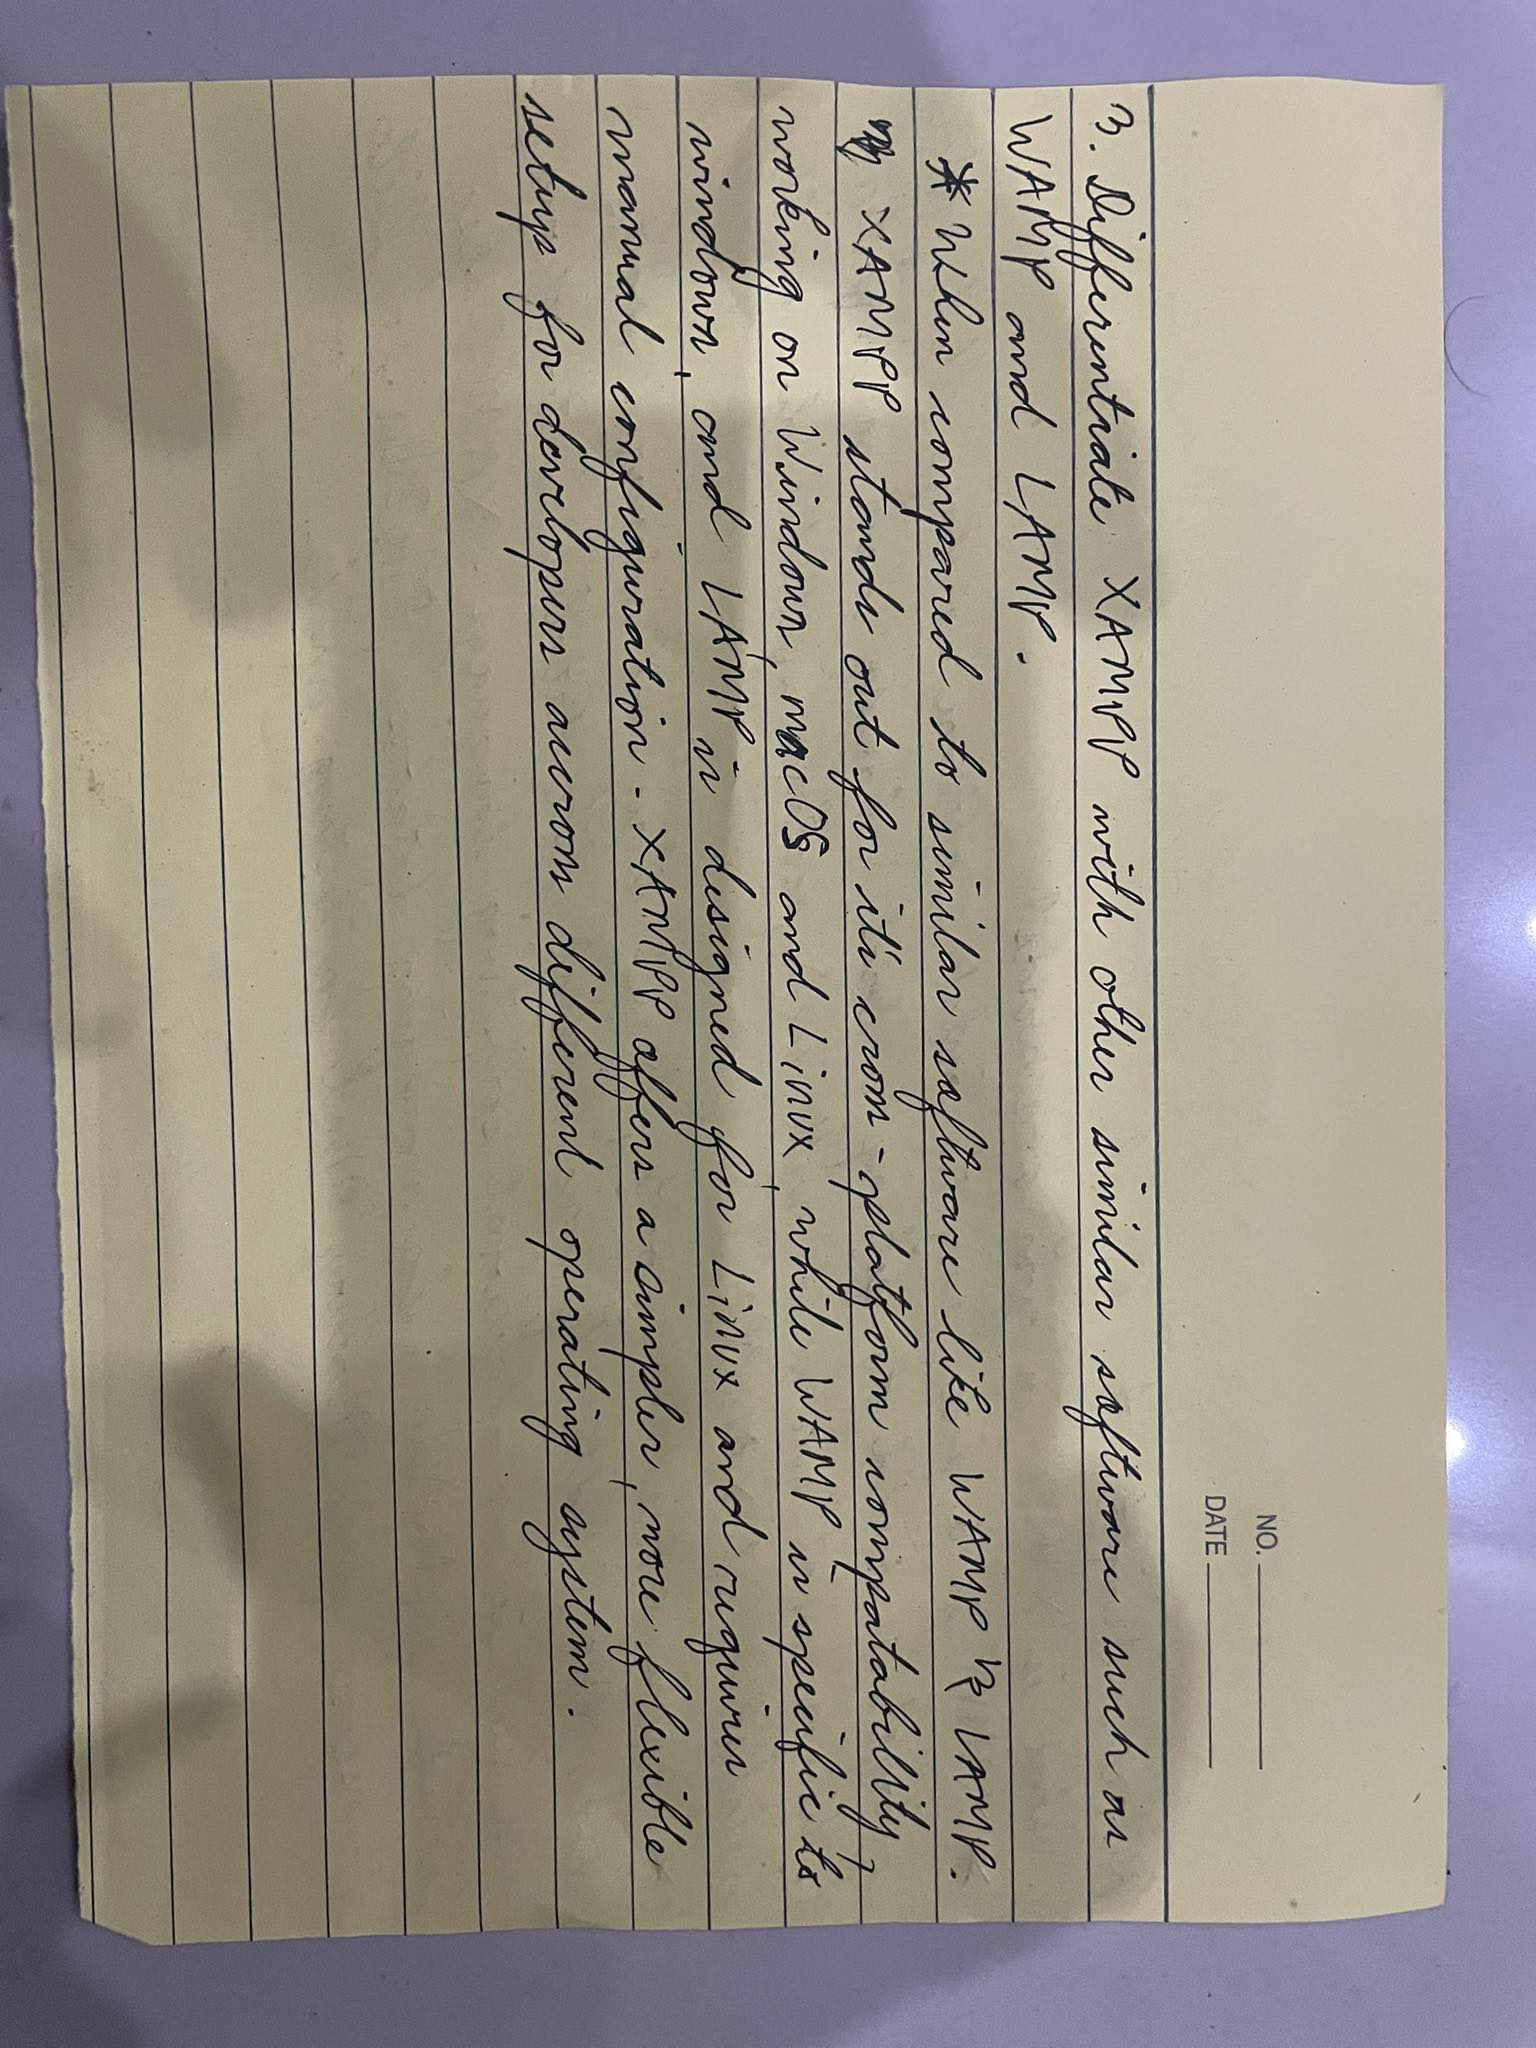 NO.
DATE
3. Differentiate XAMPP with other similar software such as
WAMP and LAMP.
* When compared to similar software like WAMP & LAMP.
XAMPP stands out for it's cross-platform compatability,
working on Windows, macOS and Linux, while WAMP is specific to
windows, and LAMP is designed for Linux and requires
manual configuration. XAMPP offers a simpler, more flexible
setup for developers across different operating system.